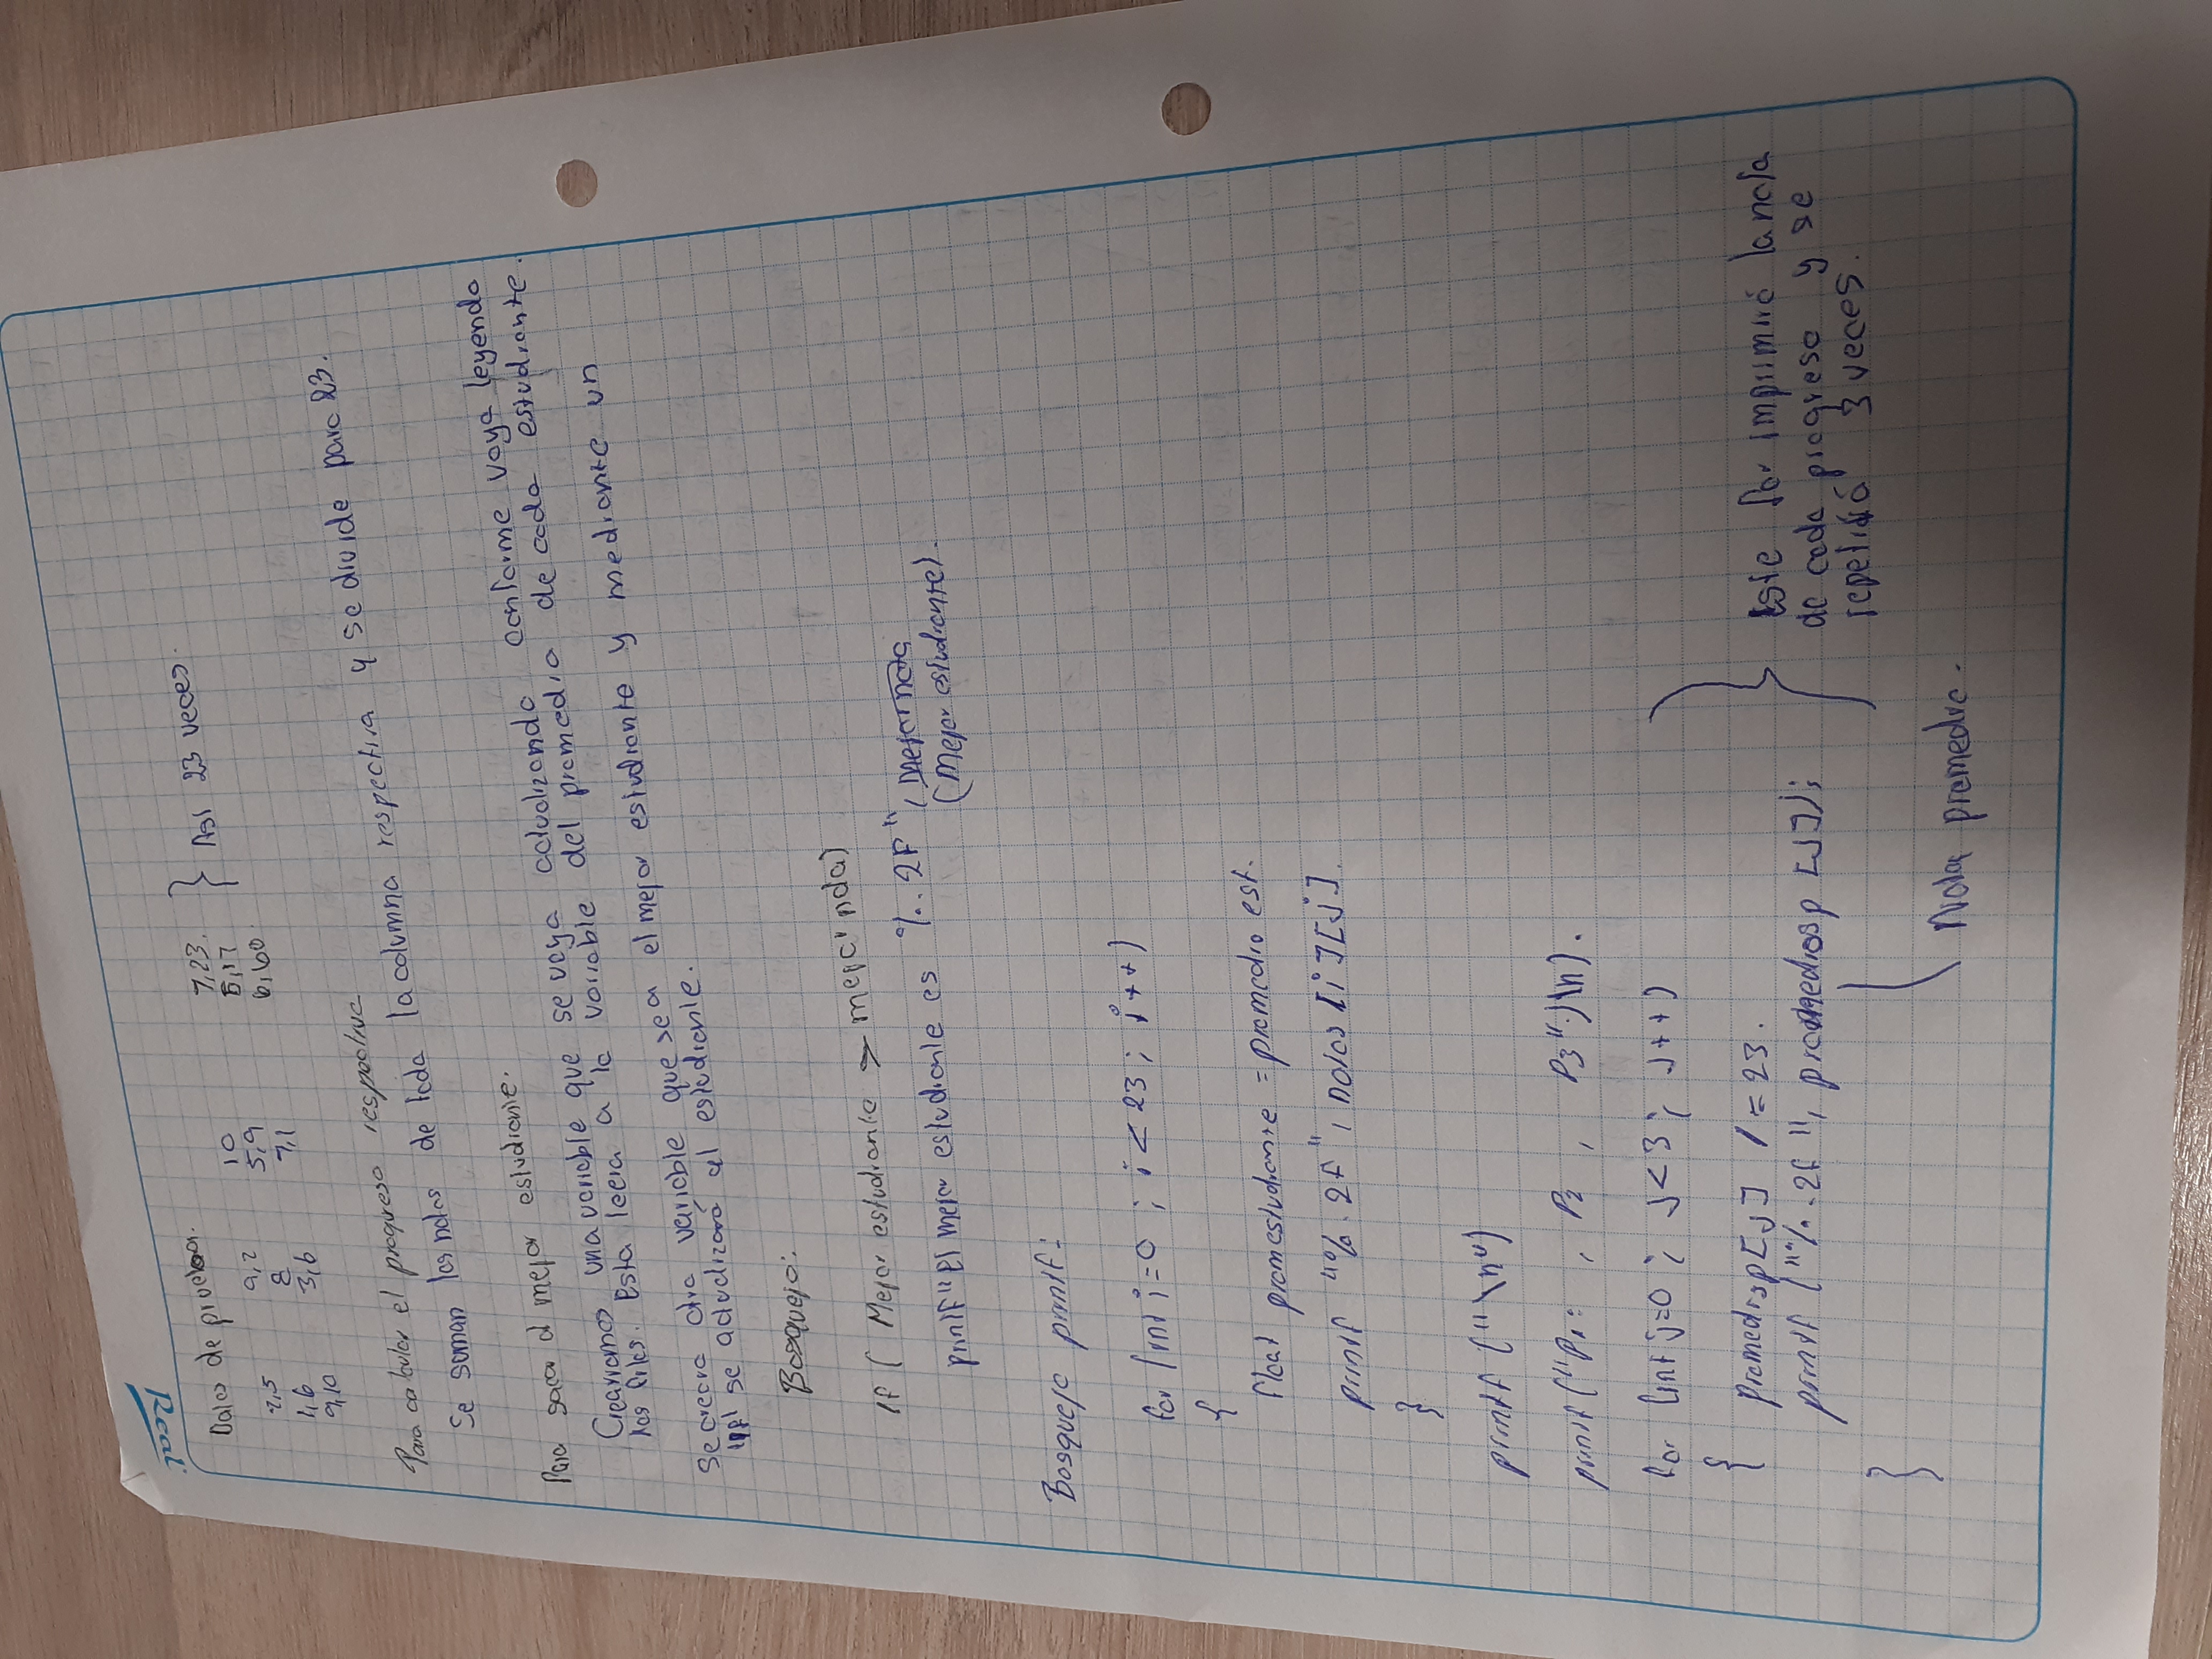 Real
Datos de prueba.
2,5 9,2 10 7,23.
1,6 8 5,9 5,17
9,10 3,6 7,1 6,60
Asi 23 veces.
Para calcular el progreso respectivo
Se suman las notas de toda la columna respectiva y se divide para 23.
Para sacar al mejor estudiante.
Crearramos una variable que se vaya actualizando conforme vaya leyendo
las filas. Esta leera a la variable del promedio de cada estudiante.
Se creara otra variable que sea el mejor estudiante y mediante un
se actualizará al estudiante.
Bosquejo:
If ( Mejor estudiante > mejor nota)
printf "El mejor estudiante es %.2f", mejor nota
(Mejor estudiante).
Bosquejo printf:
for (int i=0 ; i<23 ; i++)
{
float promestudiante = promedio est.
printf "%.2f", notas [i][j].
}
printf ("\n")
printf ("P1: , P2 , P3".)\n).
for (int j=0 ; j<3 ; j++)
{
promediosp[j] /= 23.
printf ("%.2f", promediosp [j]);
}
Este for imprimirá la nota
de cada progreso y se
repetirá 3 veces.
Nota promedio.